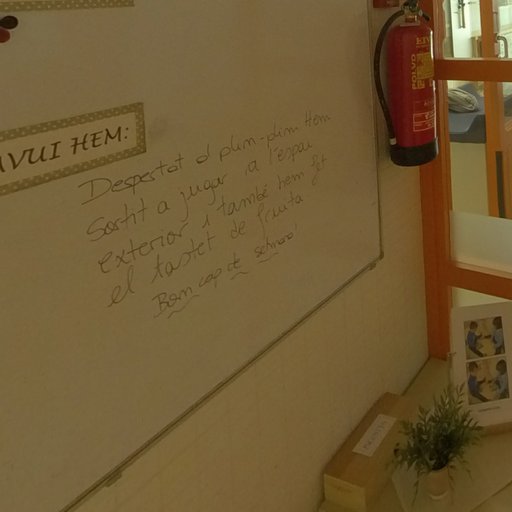 AVUI HEM:
Despertat el plim-plim Hem
Sortit a jugar a l'espai
exterior i també hem fet
el tastet de fruita
Bon cap de setmana!
POLVO